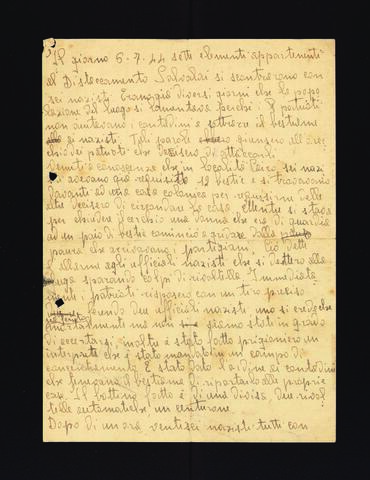 Il giorno 6-7-44 sette elementi appartenenti
al Distaccamento Salvalai si scontrarono con
sei nazisti. Era già diversi giorni che la popo
lazione del luogo si lamentava perché i Patrioti
non aiutavano i contadini a sottrarre il bestiame
ai nazisti. Tali parole giunsero all'orec
chio dei patrioti che decisero di attaccarli.
Venuti a conoscenza che in località sei nazi
sti avevano già requisito 12 bestie e si trovavano
davanti ad una casa colonica per requisirne delle
altre decisero di circondare la casa. Mentre si stava
per chiudere il cerchio una donna che era di guardia
ad un paio di bestie cominciò a gridare dalla
paura che arrivavano i partigiani. Ciò dette
l'allarme agli ufficiali nazisti che si dettero alla
fuga sparando colpi di rivoltelle. Immediata
mente i patrioti risposero con un tiro preciso
ferendo due ufficiali nazisti uno si crede che
mortalmente ma non siamo stati in grado
di accertarsi, inoltre è stato fatto prigioniero un
interprete che è stato mandato in campo di
concentramento. È stato dato l'ordine ai contadini
che fungevano da di riportarlo alle proprie
case. Il bottino fatto è di una divisa, due rivol
telle automatiche un centurone.
Dopo di un'ora ventisei nazisti tutti con